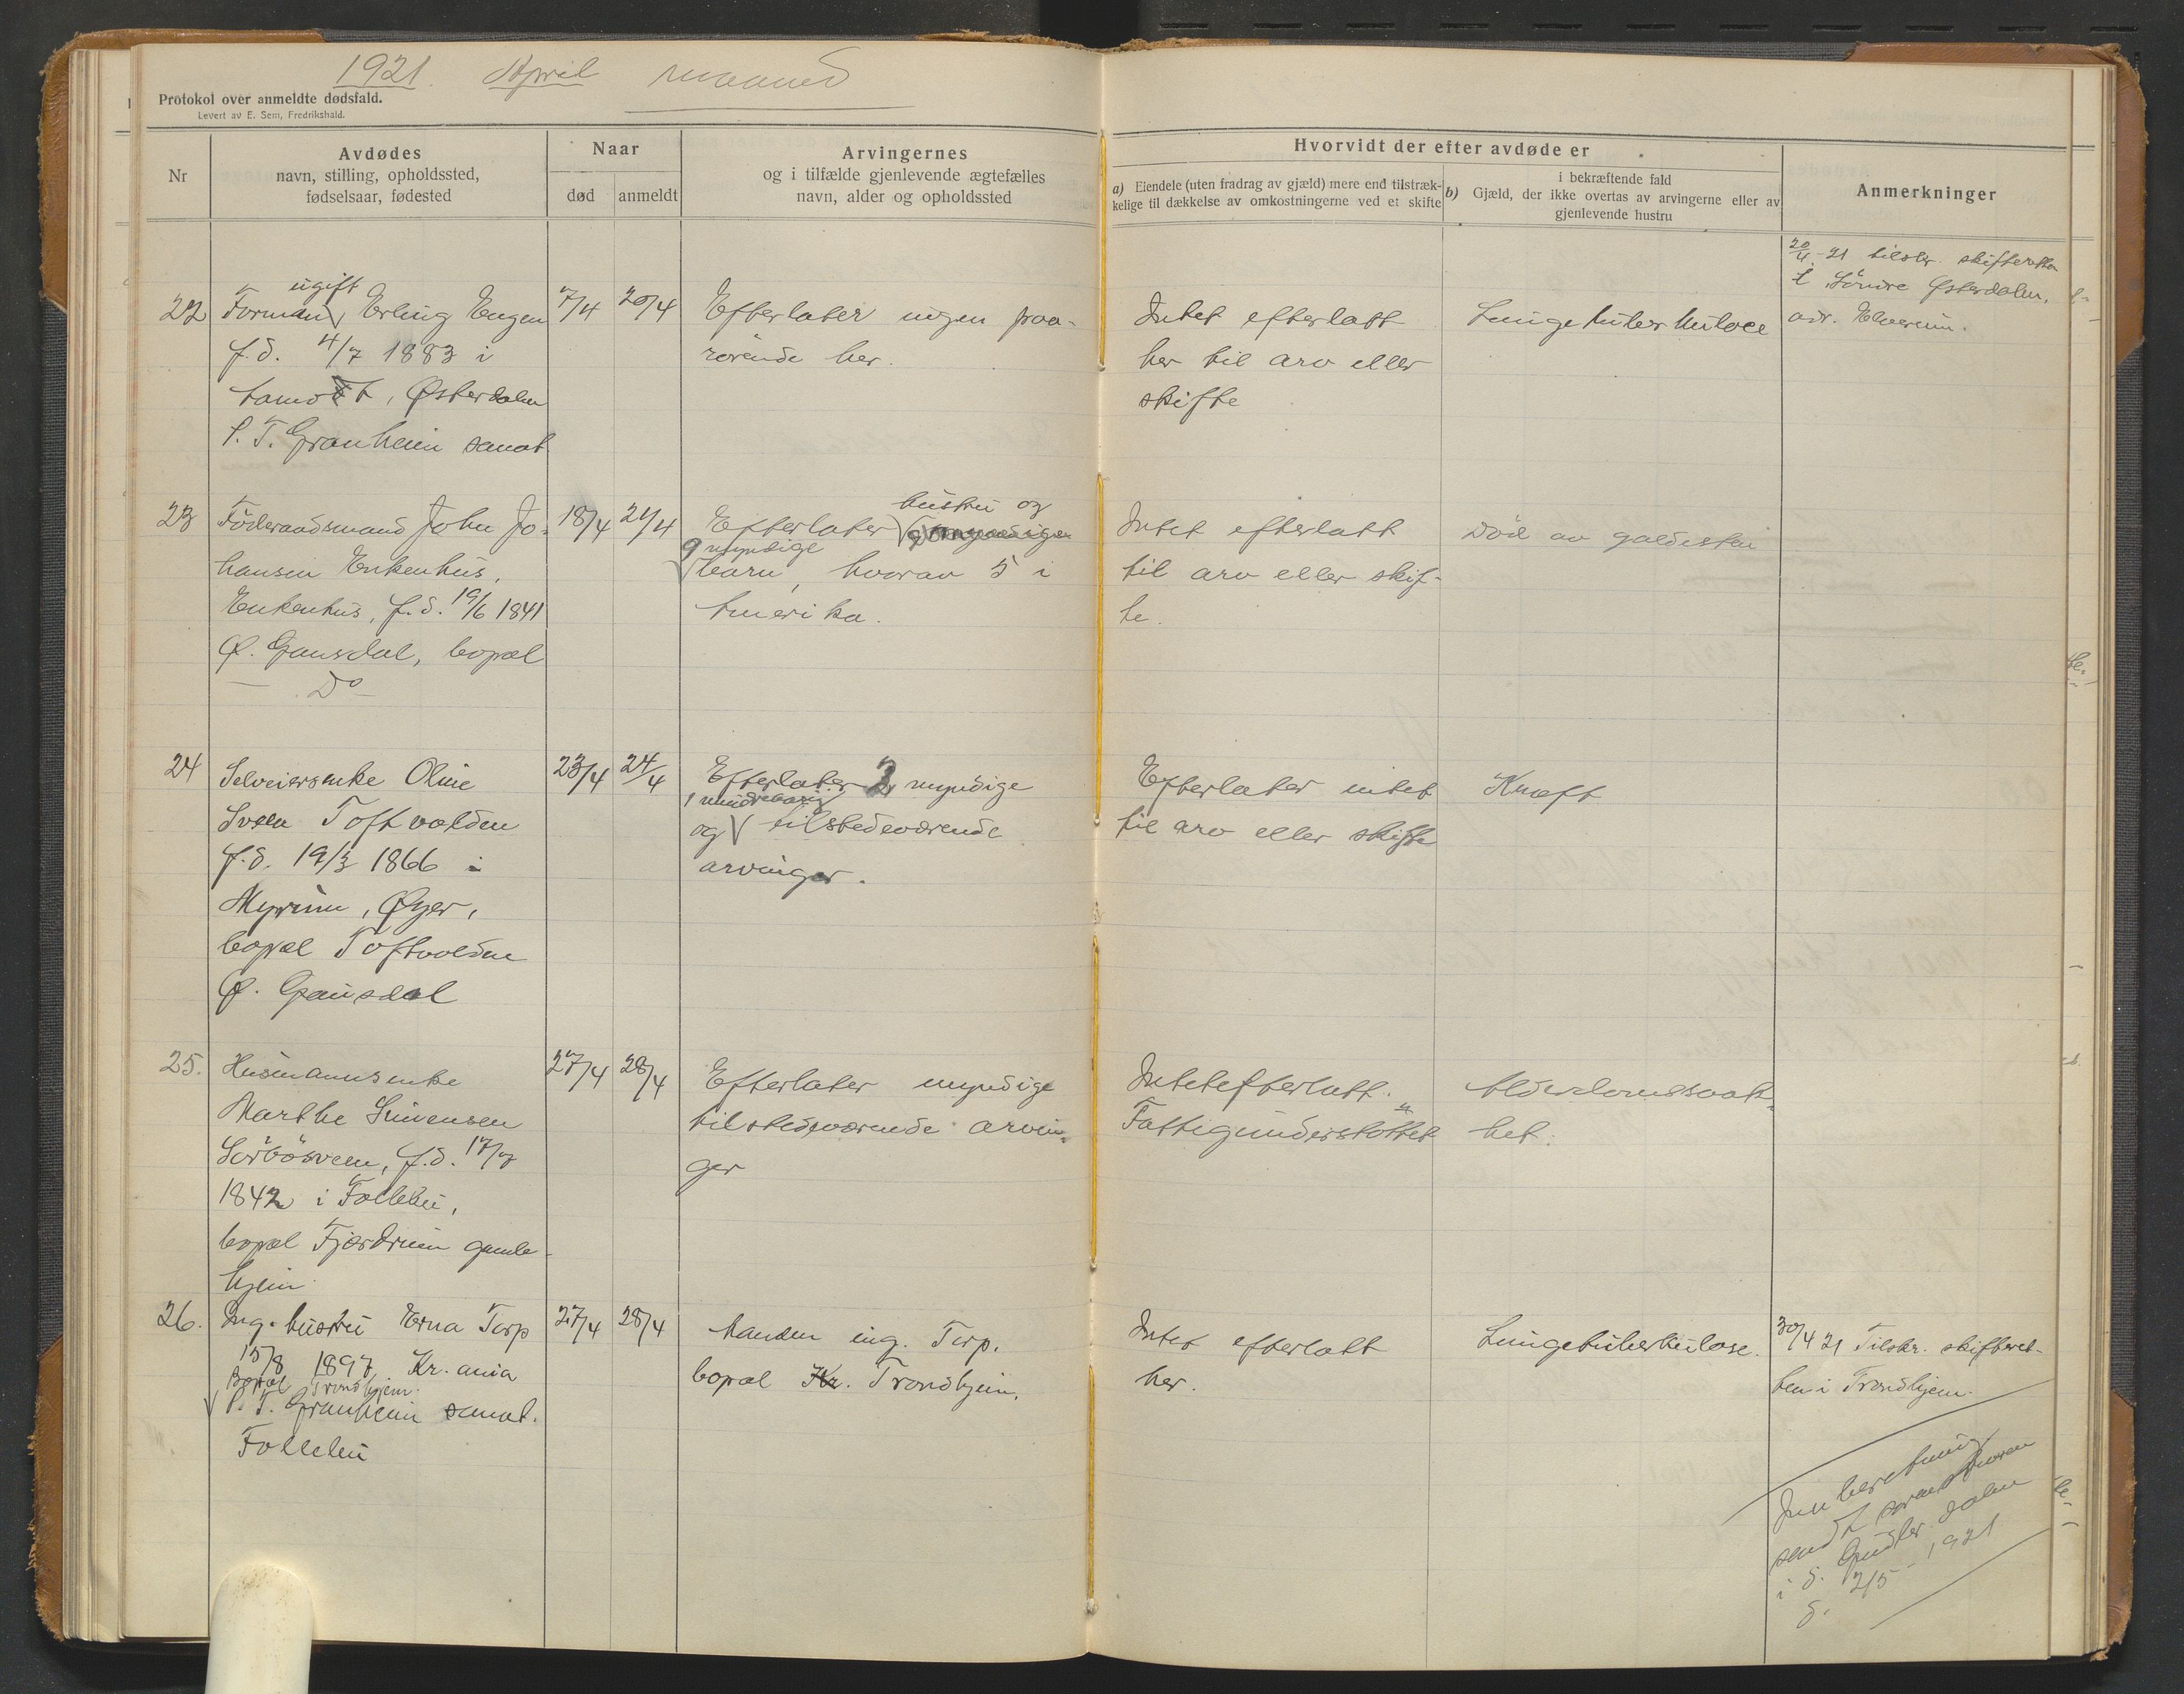 1921. April maaned
Protokol over anmeldte dødsfald.
Levert av E. Sem, Fredrikshald.
Nr
Avdødes
navn, stilling, opholdssted,
fødselsaar, fødested
Naar
død
anmeldt
Arvingernes
og i tilfælde gjenlevende ægtefælles
navn, alder og opholdssted
Hvorvidt der efter avdøde er
a) Eiendele (uten fradrag av gjæld) mere end tilstræk-
kelige til dækkelse av omkostningerne ved et skifte
i bekræftende fald
b) Gjæld, der ikke overtas av arvingerne eller av
gjenlevende hustru
Anmerkninger
22
ugift
Forman, Erling Engen
f.d. 4/7 1883 i
Aamot, Østerdalen
P. T. Granheim sanat
7/4
20/4
Efterlater ingen paa-
rørende her.
Intet efterlatt
her til arv eller
skifte
Lungetuberkulose
20/4-21 tilskr. skifteretten
i Søndre Østerdalen,
adr. Elverum.
23
Föderaadsmand John Jo-
hansen Enkenhus,
Enkenhus, f.d. 19/6 1841
Ø. Gausdal, bopæl
Do
18/4
21/4
hustru og
Efterlater
9 myndige
barn, hvorav 5 i
Amerika.
Intet efterlatt
til arv eller skif-
te.
Död av galdesten
24
Selveierenke Oline
Sveen Toftvolden
f.d. 19/3 1866 i
Myrum, Øyer,
bopæl Toftvolden
Ø. Gausdal
23/4
24/4
Efterlater 2 myndige
1 mindreaarig
og tilstedeværende
arvinger.
Efterlater intet
til arv eller skifte
Kræft
25.
Husmannsenke
Marthe Simensen
Sörbösveen, f.d. 17/7
1842 i Follebu,
bopæl Fjærdrum gamle-
hjem
27/4
28/4
Efterlater myndige
tilstedeværende arvin-
ger
Intet efterlatt.
Fattigunderstöttet
Alderdomssvak-
het.
26.
Ing. hustru Erna Torp
15/8 1897 Kr.ania
Bopæl Trondhjem.
P. T. Granheim sanat.
Follebu
27/4
28/4
Manden ing. Torp.
bopæl Kr. Trondhjem.
Intet efterlatt
her.
Lungetuberkulose.
30/4 21 Tilskr. skifteret-
ten i Trondhjem.
Innberetning
sendt sorenskriveren
i S. Gudbr.dalen
d. 2/5 - 1921